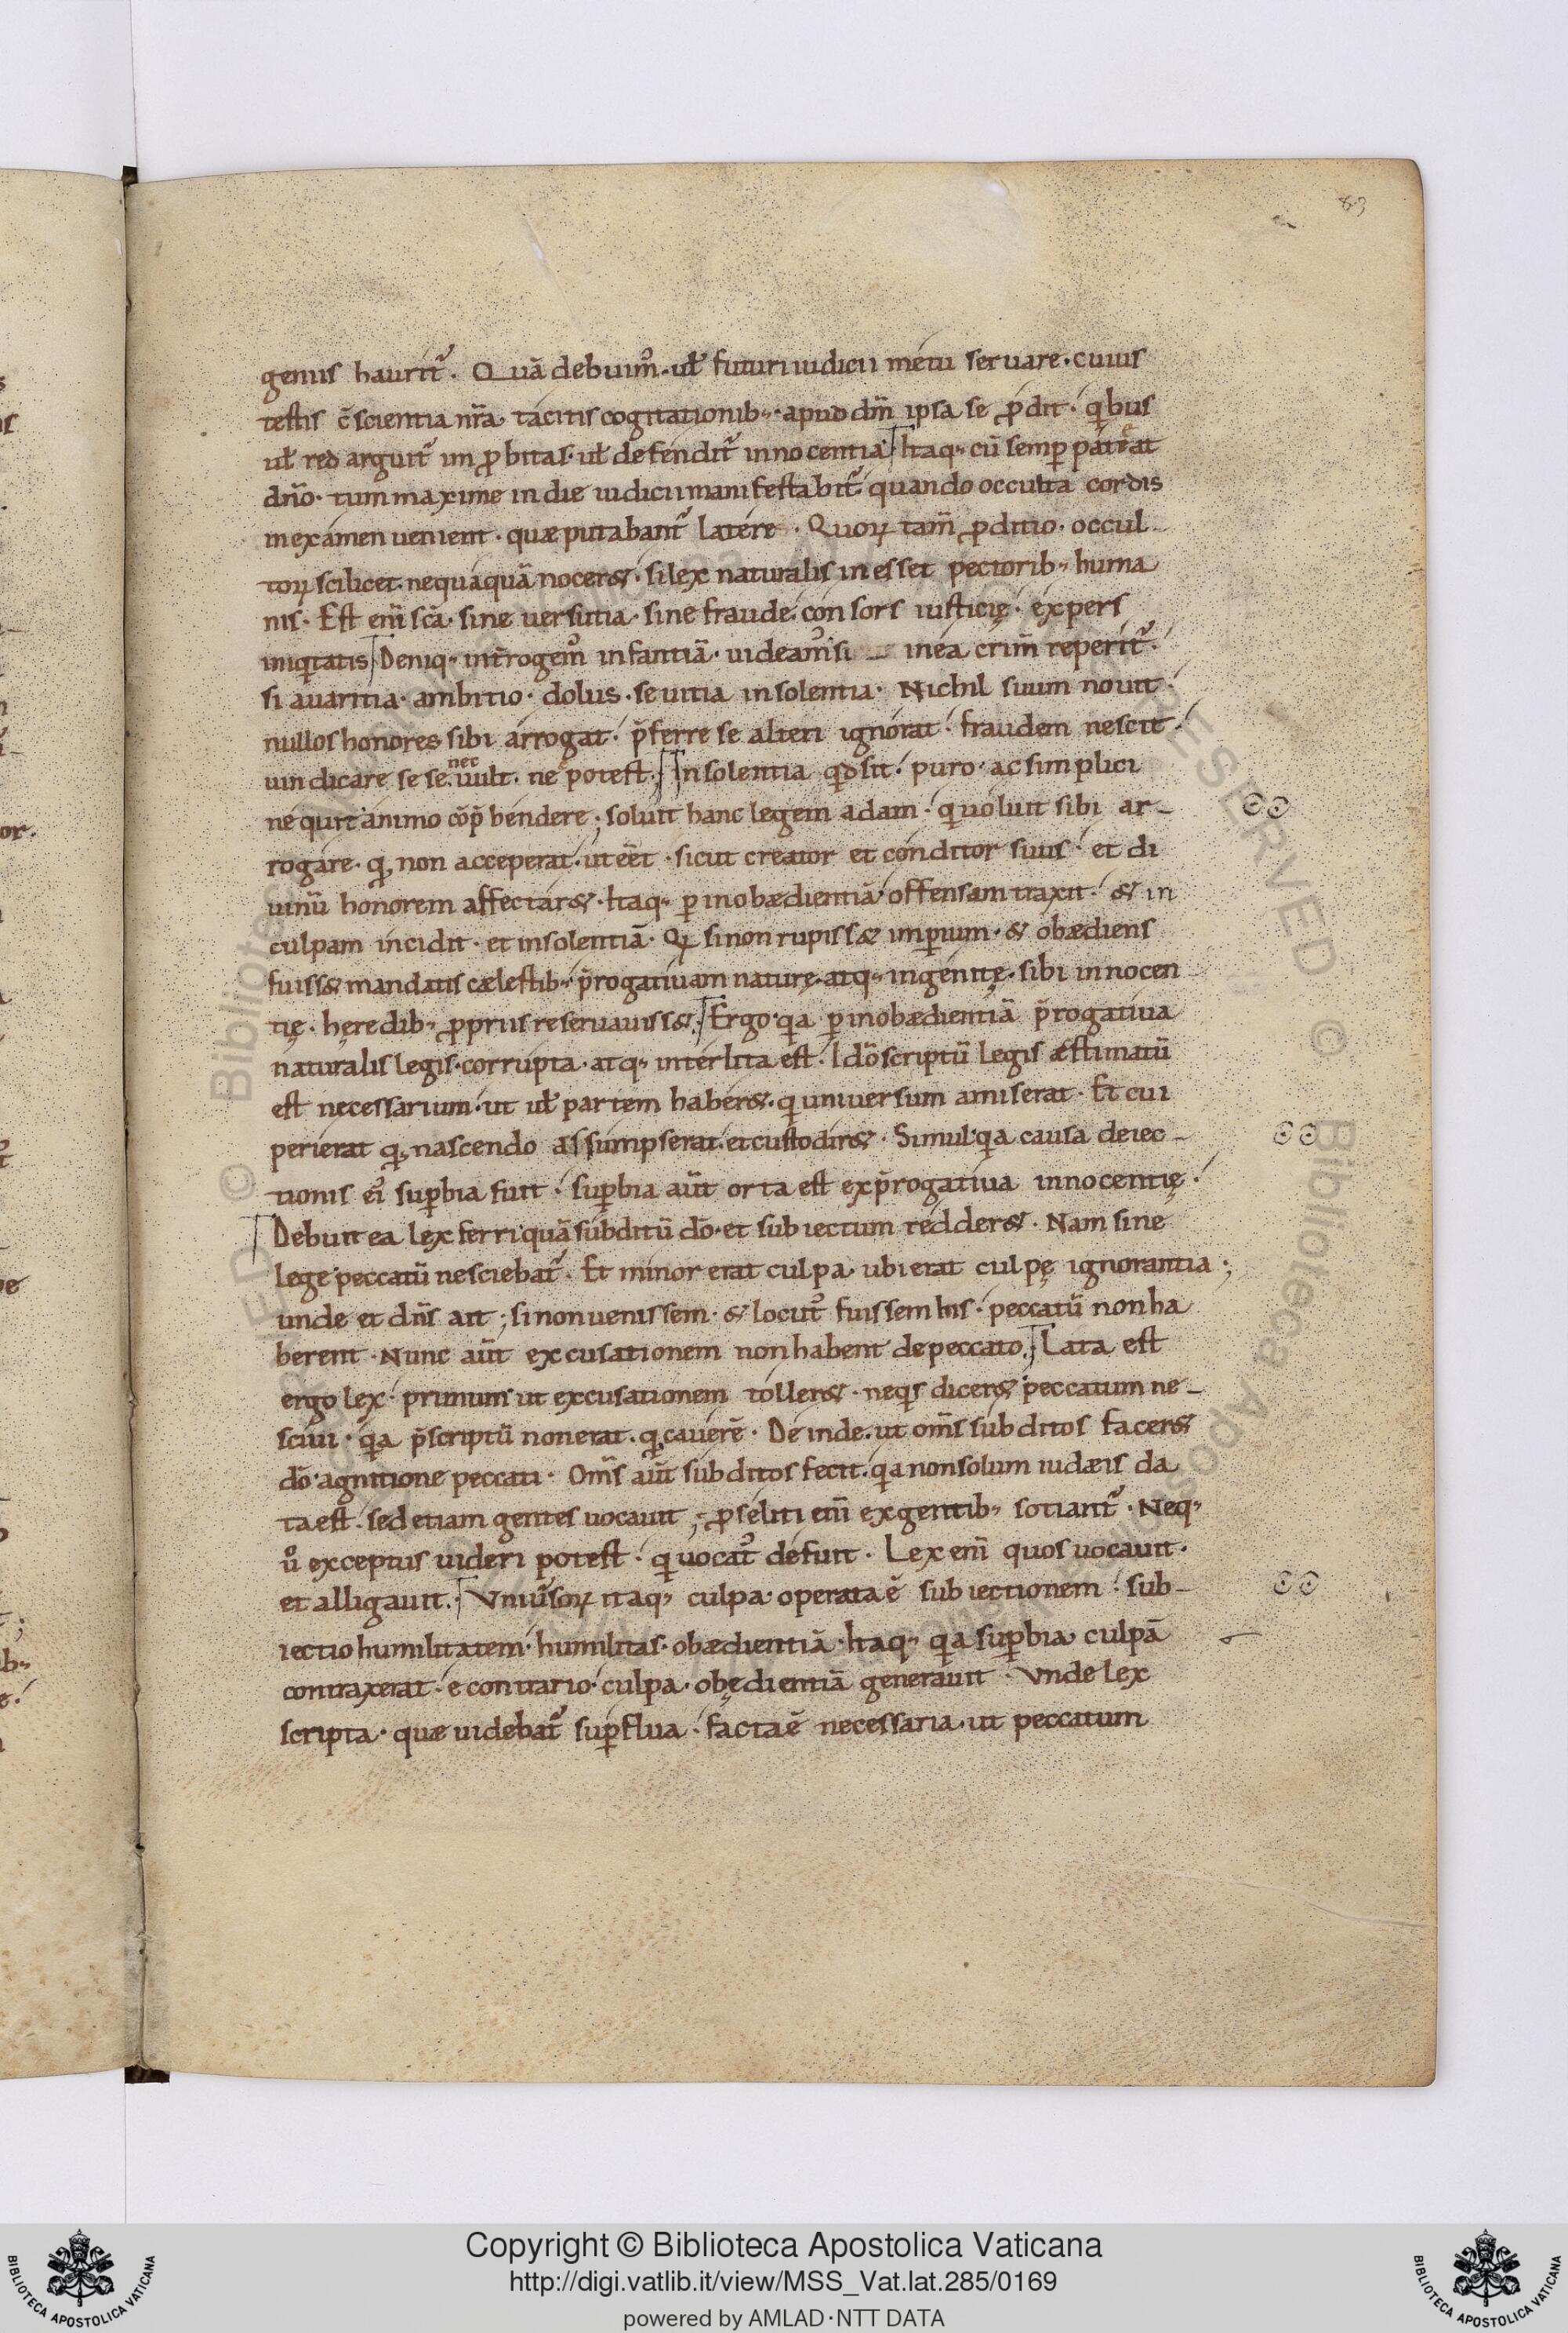 83
genus haurit᷑. Quā debuim᷒. ul̄ futuri iudicii metu seruare. cuius
testis c̄scientia nr̄a. tacitis cogitationib;. apud dm̄ ipsa se ꝓdit. qibus
ul̄ redarguit᷑ imꝓbitas. ul̄ defendit᷑ innocentia. Itaq; cū semꝑ pateat
dn̄o. tum maxime in die iudicii manifestabit᷑. quando occulta cordis
in examen uenient. quæ putabant᷑ latere. Quoꝝ tam̄ ꝓditio. occul-
toꝝ scilicet. nequaquā nocer&. si lex naturalis inesset pectorib; huma
nis. Est eni̅ sc̄a. sine uersutia. sine fraude. consors iusticię. expers
iniqitatis. Deniq; int̄rogem᷒ infantiā. uideam᷒ si in ea crim̄ reperit᷑.
si auaritia. ambitio. dolus. seuitia insolentia. Nichil suum nouit.
nullos honores sibi arrogat. p̄ferre se alteri ignorat. fraudem nescit.
uindicare se se. nec uult. nec potest. Insolentia qid sit. puro. ac simplici
ne quit animo cōp̄hendere; soluit hanc legem adam. qi uoluit sibi ar-
rogare. qꝫ non acceperat. ut eēt. sicut creator et conditor suus. et di
uinū honorem affectar&. Itaq; ꝑ inobædientiā offensam traxit. & in
culpam incidit. et insolentiā. Qꝫ si non rupiss& imꝑium. & obædiens
fuiss& mandatis cælestib;. p̄rogatiuam naturę. atq; ingenitę. sibi innocen
tię. hęredib; ꝓpriis reseruauiss&. Ergo. qia ꝑ inobædientiā p̄rogatiua
naturalis legis. corrupta. atq; interlita est. Idō scriptū legis æstimatū
est necessarium. ut ul̄ partem haber&. qi uniuersum amiserat. Et cui
perierat qꝫ nascendo assumpserat. et custodir&. Simul. qia causa deiec-
tionis ei᷒ suꝑbia fuit. suꝑbia aūt orta est ex p̄rogatiua innocentię.
Debuit ea lex ferri. quā subditū dō. et subiectum redder&. Nam sine
lege peccatū nesciebat᷑. Et minor erat culpa. ubi erat culpę ignorantia;
unde et dn̄s ait; si non uenissem. & locut᷒ fuissem his. peccatū non ha
berent. Nunc aūt excusationem non habent de peccato. Lata est
ergo lex. primum ut excusationem toller&. ne qis dicer& peccatum ne-
sciui. qia p̄scriptū non erat. qꝫ cauerē. Deinde. ut om̄s subditos facer&
dō. agnitione peccati. Om̄s aūt subditos fecit. qia non solum iudæis da
ta est. sed etiam gentes uocauit; ꝓseliti eni̅ ex gentib; sotiant᷑. Neq;
ů exceptus uideri potest. qi uocat᷒ defuit. Lex eni̅ quos uocauit.
et alligauit. Vniūsoꝝ itaq; culpa. operata ē subiectionem. sub-
iectio humilitatem. humilitas. obædientiā. Itaq; qia suꝑbia culpā
contraxerat. e contrario. culpa. obędientiā generauit. Vnde lex
scripta. quæ uidebat᷑ suꝑflua. facta ē necessaria. ut peccatum
Copyright © Biblioteca Apostolica Vaticana
http://digi.vatlib.it/view/MSS_Vat.lat.285/0169
powered by AMLAD·NTT DATA